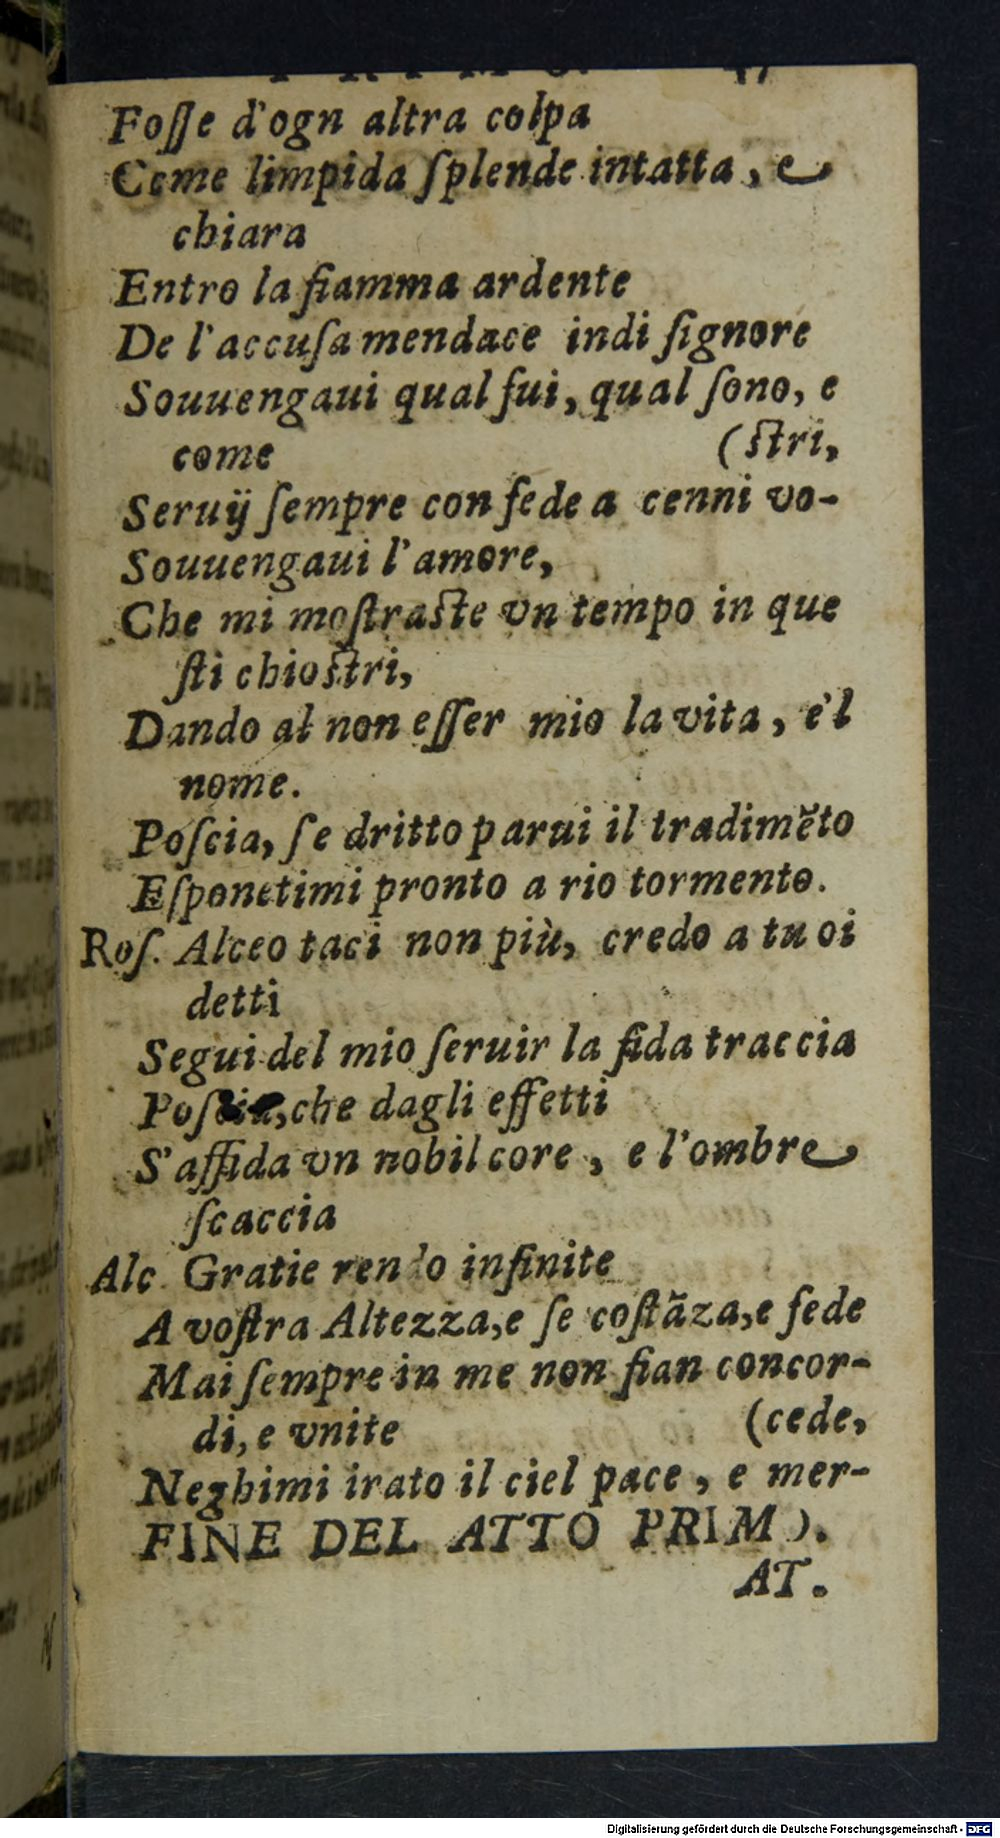 PRIMO. 47
Foſſe d'ogn altra colpa
Come limpida ſplende intatta, e
chiara
Entro la fiamma ardente
De l'accuſa mendace indi ſignore
Souuengaui qual fui, qual ſono, e
come (ſtri,
Seruij ſempre con fede a cenni vo-
Souuengaui l'amore,
Che mi moſtraſte vn tempo in que
ſti chioſtri,
Dando al non eſſer mio la vita, e'l
nome.
Poſcia, ſe dritto parui il tradimẽto
Eſponetimi pronto a rio tormento.
Roſ. Alceo taci non più, credo a tuoi
detti
Segui del mio ſeruir la fida traccia
Poſcia, che dagli effetti
S'affida vn nobil core, e l'ombre
ſcaccia
Alc. Gratie rendo infinite
A voſtra Altezza, e ſe coſtãza, e fede
Mai ſempre in me non fian concor-
di, e vnite (cede,
Neghimi irato il ciel pace, e mer-
FINE DEL ATTO PRIMO.
AT.
Digitalisierung gefördert durch die Deutsche Forschungsgemeinschaft - DFG